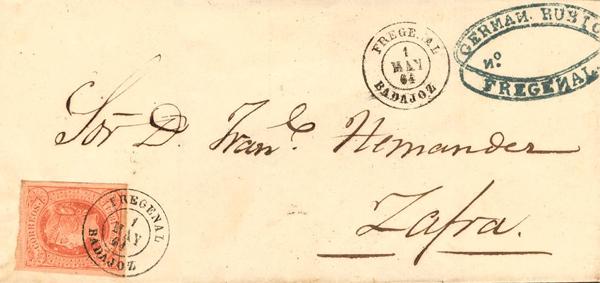 FREGENAL
1
MAY
64
BADAJOZ
GERMAN. RUBIO
Nº
FREGENAL.
Sor D. Franco. Hernandez
Zafra.
CORREOS
FREGENAL
1
MAY
64
BADAJOZ